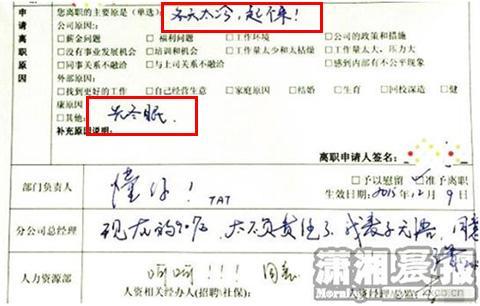 申请原因
您离职的主要原是(单选) 冬天太冷,起不来!
公司原因:
□薪金问题 □福利问题 □工作环境 □公司的政策和措施
□没有事业发展机会 □培训和机会 □工作量太少和太枯燥 □工作量太大、压力大
□同事关系不融洽 □与上司关系不融洽 □感到内部有不公平现象
外部原因:
□找到更好的工作 □自己经营生意 □家庭原因 □结婚 □生育 □回校深造 □健
康原因
□其他: 先冬眠.
补充原因说明:
离职申请人签名:
部门负责人 懂你! TAT □予以慰留 准予离职
生效日期: 2015 12月9日
分公司总经理 现在的90后, 太不负责任了 我表示无语, 同意
人力资源部 呵呵!!! 同意
人资相关经办人(招聘\社保):
潇湘晨报